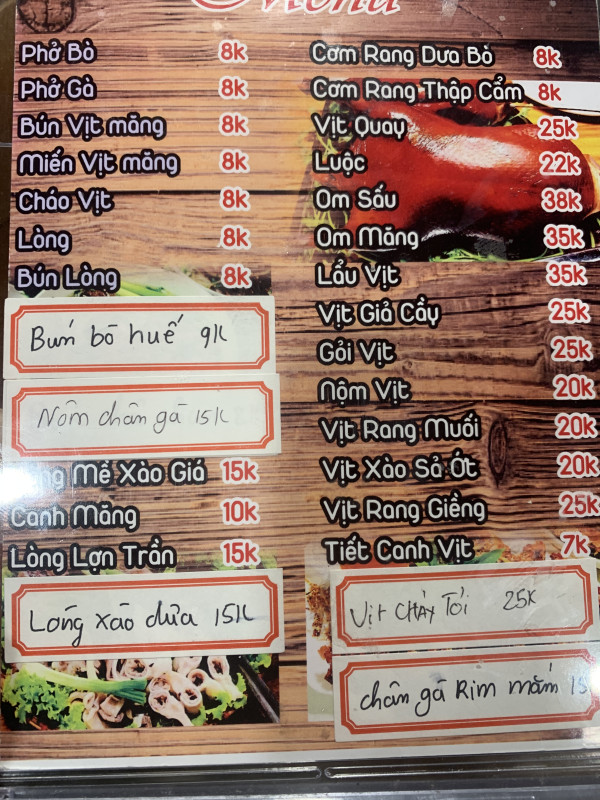 Menu
Phở Bò 8k
Phở Gà 8k
Bún Vịt măng 8k
Miến Vịt măng 8k
Cháo Vịt 8k
Lòng 8k
Bún Lòng 8k
Bún bò huế 9K
Nộm chân gà 15K
Mề Xào Giá 15k
Canh Măng 10k
Lòng Lợn Trần 15k
Lòng xào dưa 15K
Cơm Rang Dưa Bò 8k
Cơm Rang Thập Cẩm 8k
Vịt Quay 25k
Luộc 22k
Om Sấu 38k
Om Măng 35k
Lẩu Vịt 35k
Vịt Giả Cầy 25k
Gỏi Vịt 25k
Nộm Vịt 20k
Vịt Rang Muối 20k
Vịt Xào Sả Ớt 20k
Vịt Rang Giềng 25k
Tiết Canh Vịt 7k
Vịt CHÁY TỎI 25K
chân gà Rim mắm 15